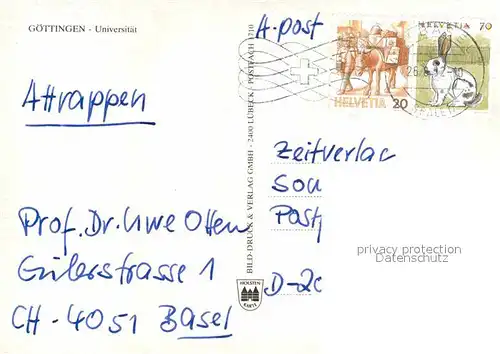 GÖTTINGEN - Universität
A-post
HELVETIA 70
HELVETIA 20
Attrappen
BILD-DRUCK & VERLAG GMBH - 2400 LÜBECK / POSTFACH 1710
Zeitverlag
Post
privacy protection
Datenschutz
Prof. Dr. Uwe Otten
Eulerstrasse 1
CH-4051 Basel
HOLSTEN
KARTE